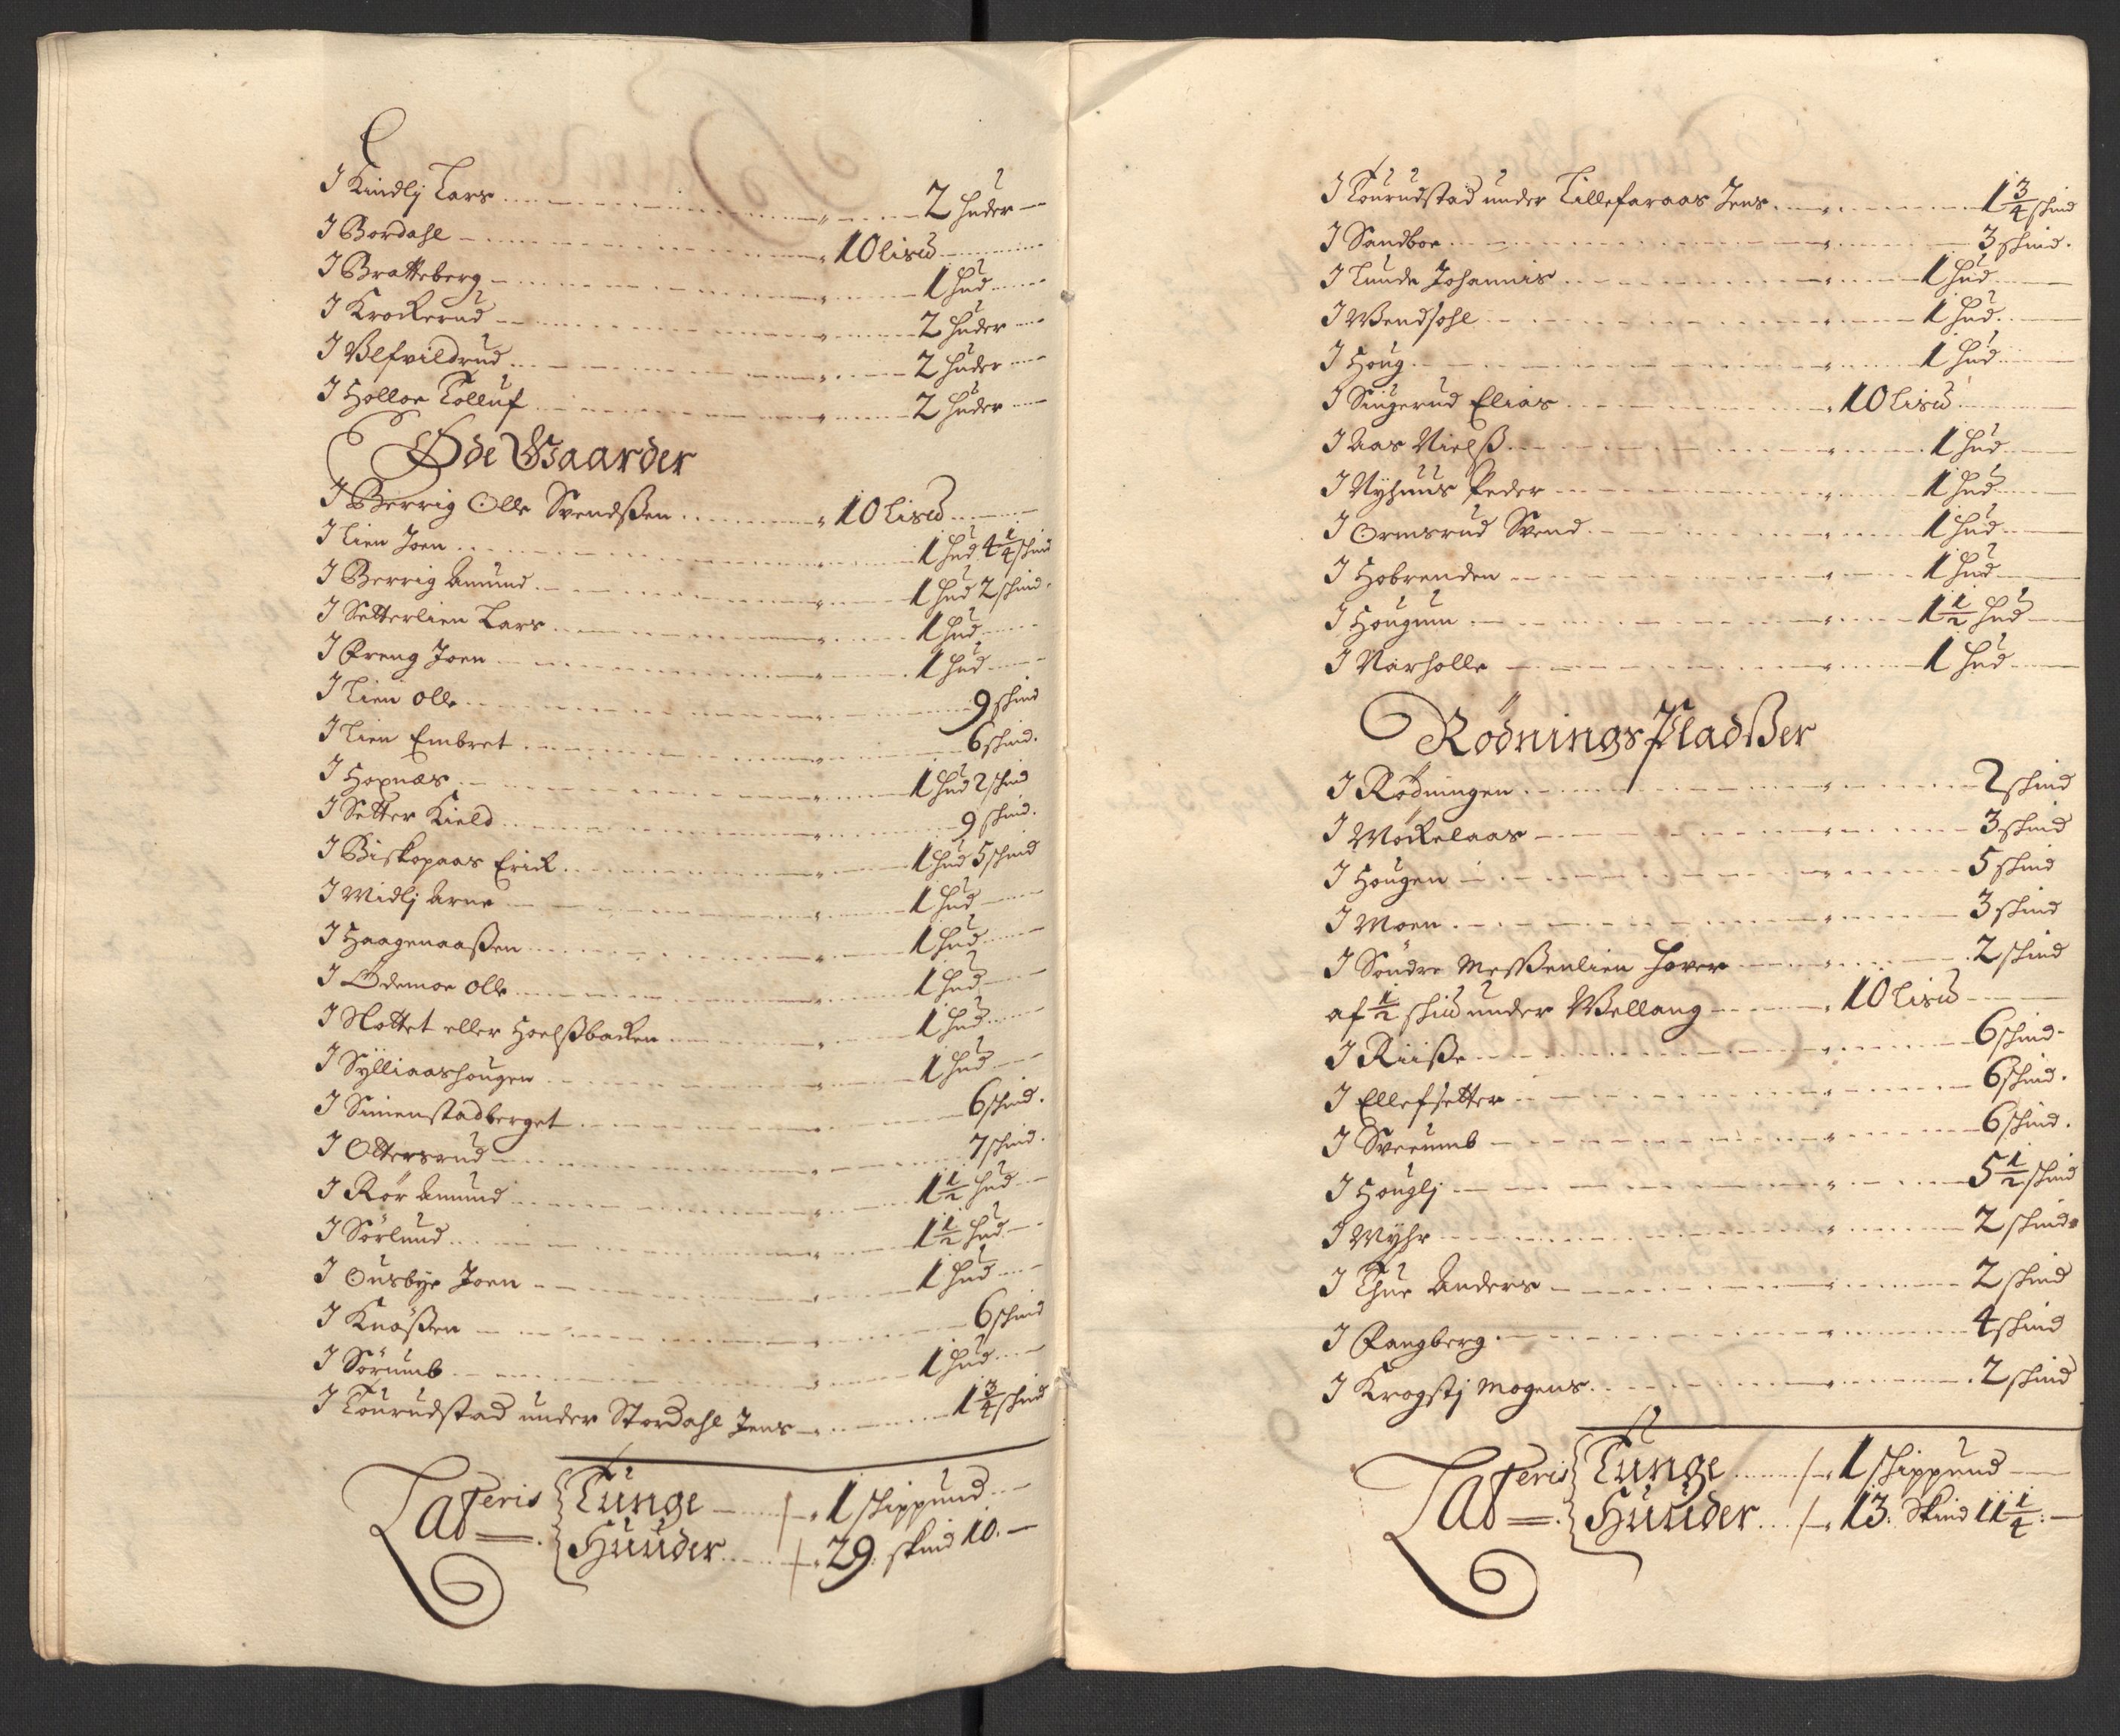 I Kindlj Lars 2 huder
I Bordahl 10 lis℔
I Bratteberg 1 hud
I Krokerud 2 huder
I Ulfvildrud 2 huder
I Holloe Tolluf 2 huder
Øde Gaarder
I Berrig Olle Svendßen 10 lis℔
I Lien Joen 1 hud 4 1/4 skind
I Berrig Amund 1 hud 2 skind.
I Setterlien Lars 1 hud
I Freng Joen 1 hud
I Lien Olle 9 skind
I Lien Embret 6 skind.
I Hoxnæs 1 hud 2 skind
I Setter Kield 9 skind.
I Biskopaas Erick 1 hud 5 skind
I Midlj Arne 1 hud
I Haagenaaßen 1 hud
I Ødemoe Olle 1 hud
I Slottet eller Hoelßbacken 1 hud
I Sylliaashougen 1 hud
I Simenstadberget 6 skind.
I Ottersrud 7 skind.
I Rör Amund 1 1/2 hud
I Sörlund 1 1/2 hud
I Ousbye Joen 1 hud
I Knößen 6 skind
I Sörumb 1 hud
I Tourudstad under Stordahl Jens 1 3/4 skind
Lateris Tunge 1 skippund
Huuder 29. skind 10.
I Tourudstad under Lillefaraas Jens 1 3/4 skind
I Sandboe 3 skind.
I Lunde Johannis 1 hud
I Wendsohl 1 hud
I Houg 1 hud
I Singerud Elias 10 lis℔
I Aas Nielß 1 hud
I Nyhuus Peder 1 hud
I Ormsrud Svend 1 hud
I Hobrenden 1 hud
I Hougum 1 1/2 hud
I Narholle 1 hud
Rödnings Pladßer
I Rödningen 2 skind
I Mökelaas 3 skind
I Hougen 5 skind
I Moen 3 skind
I Söndre Meßenlien Hover 2 skind
af 1/2 ski℔ under Vellang 10 lis℔
I Riiße 6 skind.
I Ellefsetter 6 skind.
I Sveumb 6 skind.
I Houglj 5 1/2 skind
I Myhr 2 skind.
I Thue Anders 2 skind
I Fangberg 4 skind
I Krogstj Mogens 2 skind
Lateris Tunge 1 skippund
Huuder 13. Skind 11 1/4.